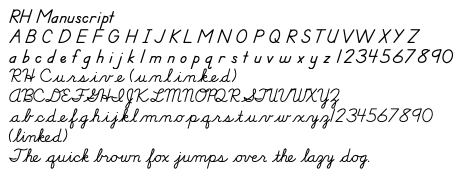 RH Manuscript
A B C D E F G H I J K L M N O P Q R S T U V W X Y Z
a b c d e f g h i j k l m n o p q r s t u v w x y z 1234567890
RH Cursive (unlinked)
ABCDEFGHIJKLMNOPQRSTUVWXYZ
abcdefghijklmnopqrstuvwxyz1234567890
(linked)
The quick brown fox jumps over the lazy dog.